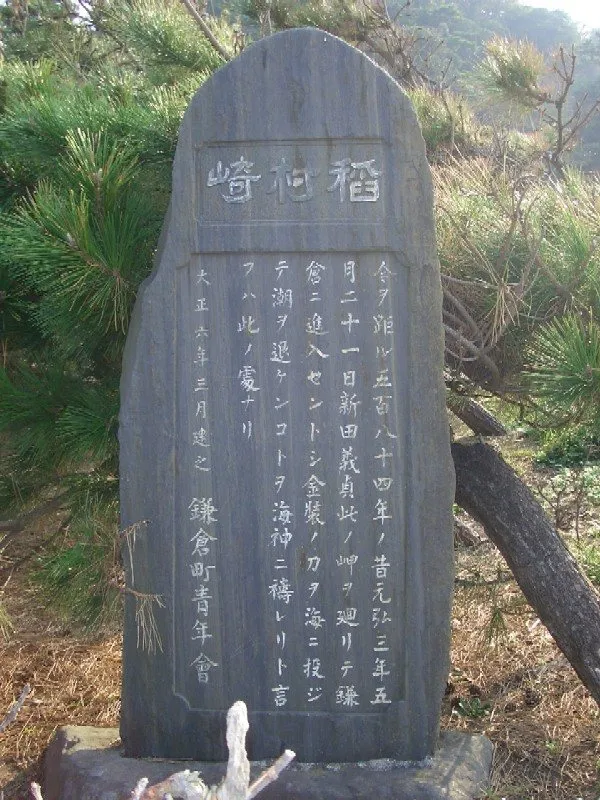 稲村崎
今ヲ距ル五百八十四年ノ昔元弘三年五
月二十一日新田義貞此ノ岬ヲ廻リテ鎌
倉ニ進入セントシ金装ノ刀ヲ海ニ投ジ
テ潮ヲ退ケンコトヲ海神ニ祷レリト言
フハ此ノ処ナリ
大正六年三月建之 鎌倉町青年會